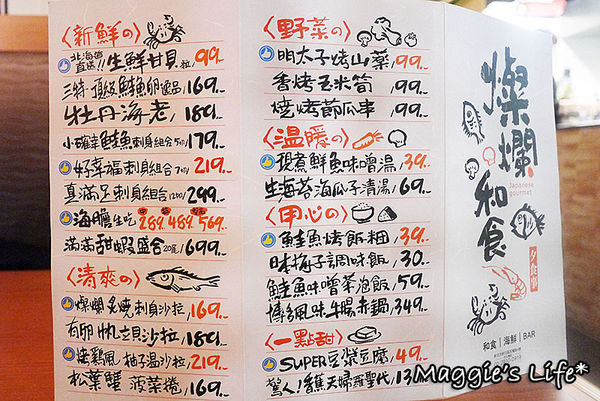 〈新鮮の〉
北海道直送!!生鮮甘貝/粒 99..
三特・頂級鮭魚卵 169..
牡丹海老/189..
小確幸鮭魚刺身組合5切 179..
好幸福刺身組合7切 219..
真滿足刺身組合12切 299..
海膽生吃 289. 489. 569..
滿滿甜蝦盛合20尾/699..
〈清爽の〉
燦爛炙燒刺身沙拉/169..
有卵帆立貝沙拉/189..
柚子溫沙拉/219..
松葉蟹 菠菜捲/169..
〈野菜の〉
明太子烤山藥/99..
香烤玉米筍/99..
燒烤節瓜串/99..
〈溫暖の〉
現煮鮮魚味噌湯/39..
生海苔海瓜子清湯/69..
〈甲心の〉
鮭魚烤飯糰/39..
日本梅子調味飯/30..
鮭魚味噌茶泡飯/59..
博多風味牛腸赤鍋/349..
〈一點甜〉
SUPER豆漿豆腐/49..
驚人!香蕉天婦羅聖代/13
燦爛
Japanese gourmet
和食
夕食事
和食|海鮮|BAR
Maggie's Life*